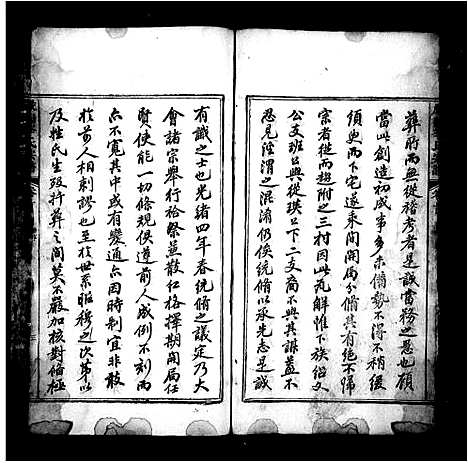 葬所而無從稽考者是誠當務之急也顧
當此創造初成事多未備勢不得不稍緩
須臾而下宅遂乘間開局分脩其有絕不歸
宗者從而超附之三村因此瓦解惟下族紹文
公支班呂與從瑛公下二支裔不與其謀蓋不
忍見涇渭之混淆仍俟統脩以承先志是誠
有識之士也光緒四年春統脩之議定乃大
會諸宗舉行祫祭並散紅格擇期開局任
賢使能一切條規俱遵前人成例不刻而
亦不寬其中或有變通亦因時制宜非敢
於前人相刺謬也至於世系昭穆之次第以
及姓氏生歿扦葬之間莫不嚴加核對脩極